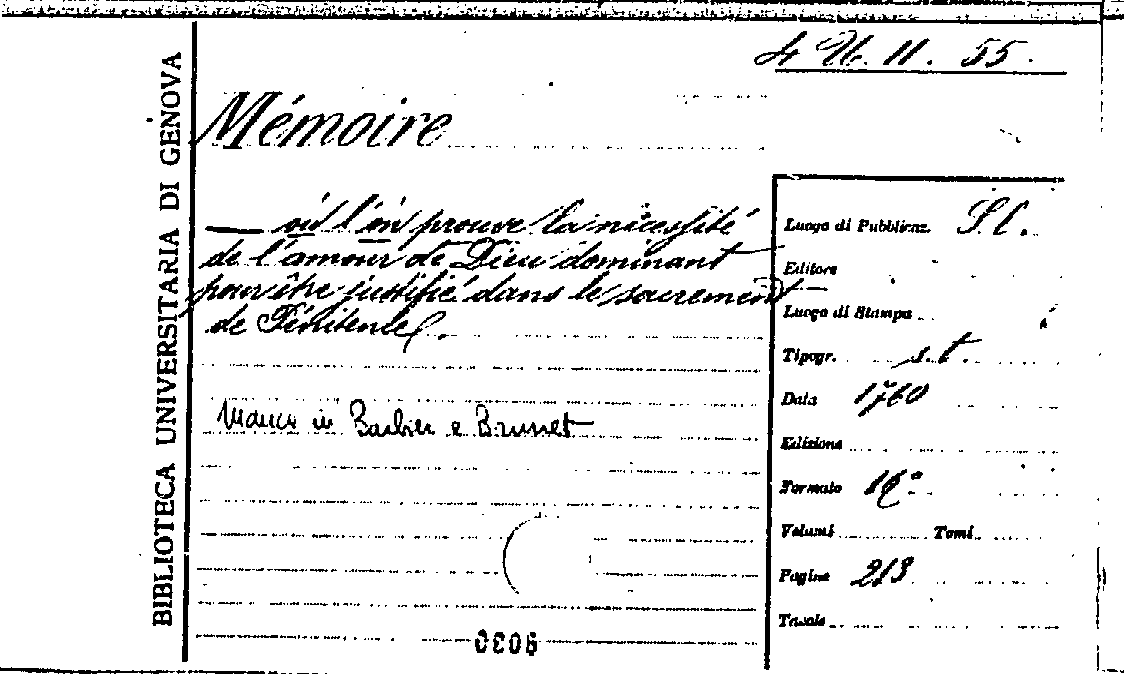 4 U. 11. 55.
BIBLIOTECA UNIVERSITARIA DI GENOVA
Mémoire
— où l'on prouve la nécessité
de l'amour de Dieu dominant
pour être justifié dans le sacrement
de Pénitence.
Manca in Barbier e Brunet
Luogo di Pubblicaz. S.l.
Editore —
Luogo di Stampa
Tipogr. s.t.
Data 1760
Edizione
Formato
Volumi Tomi
Pagine 213
Tavole